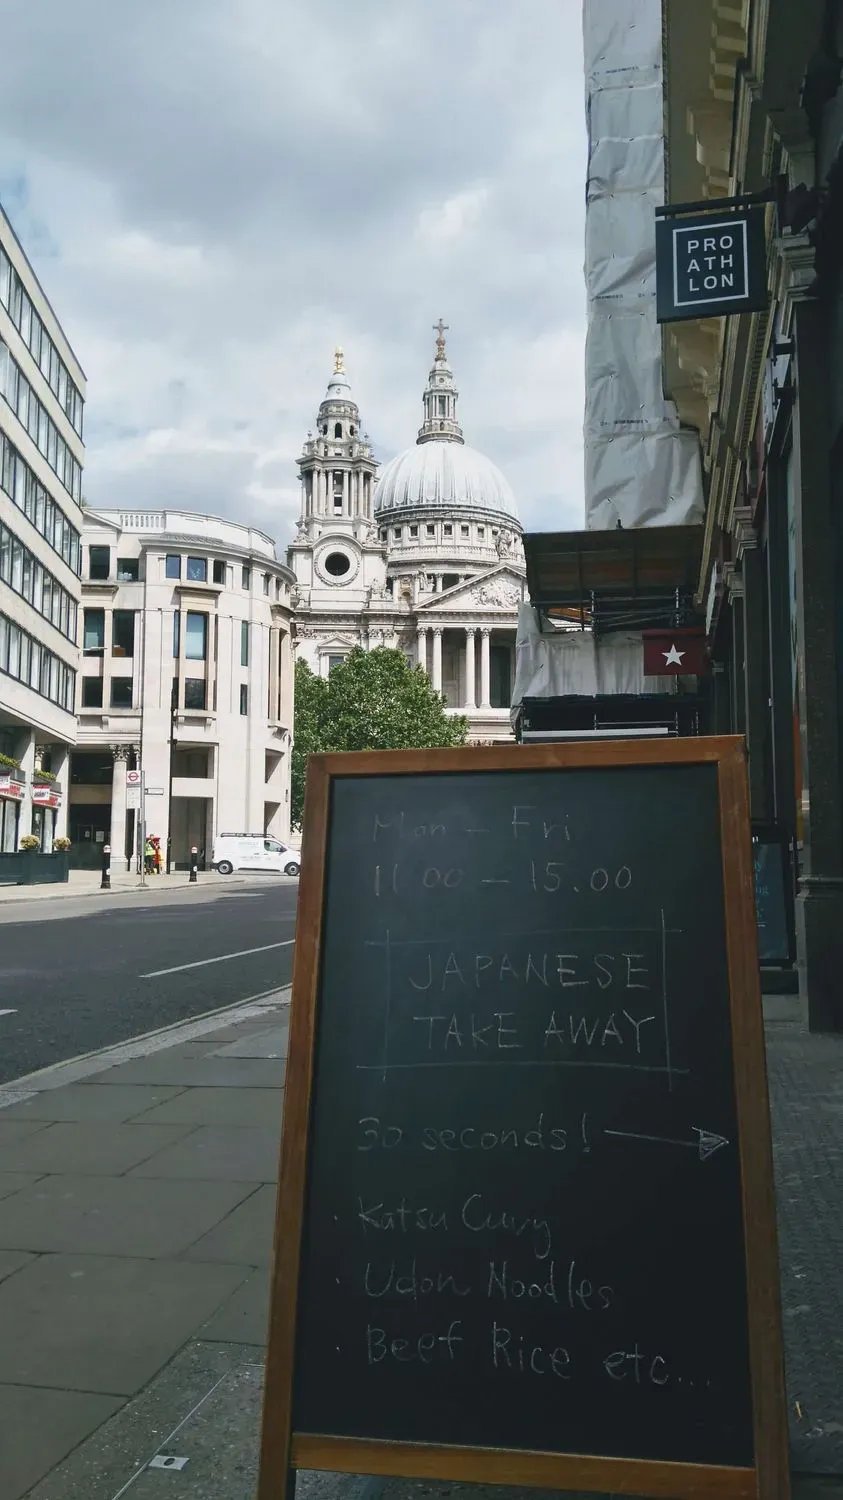 PRO
ATH
LON
Mon - Fri
11.00 - 15.00
JAPANESE
TAKE AWAY
30 seconds!
· Katsu Curry
· Udon Noodles
· Beef Rice etc...